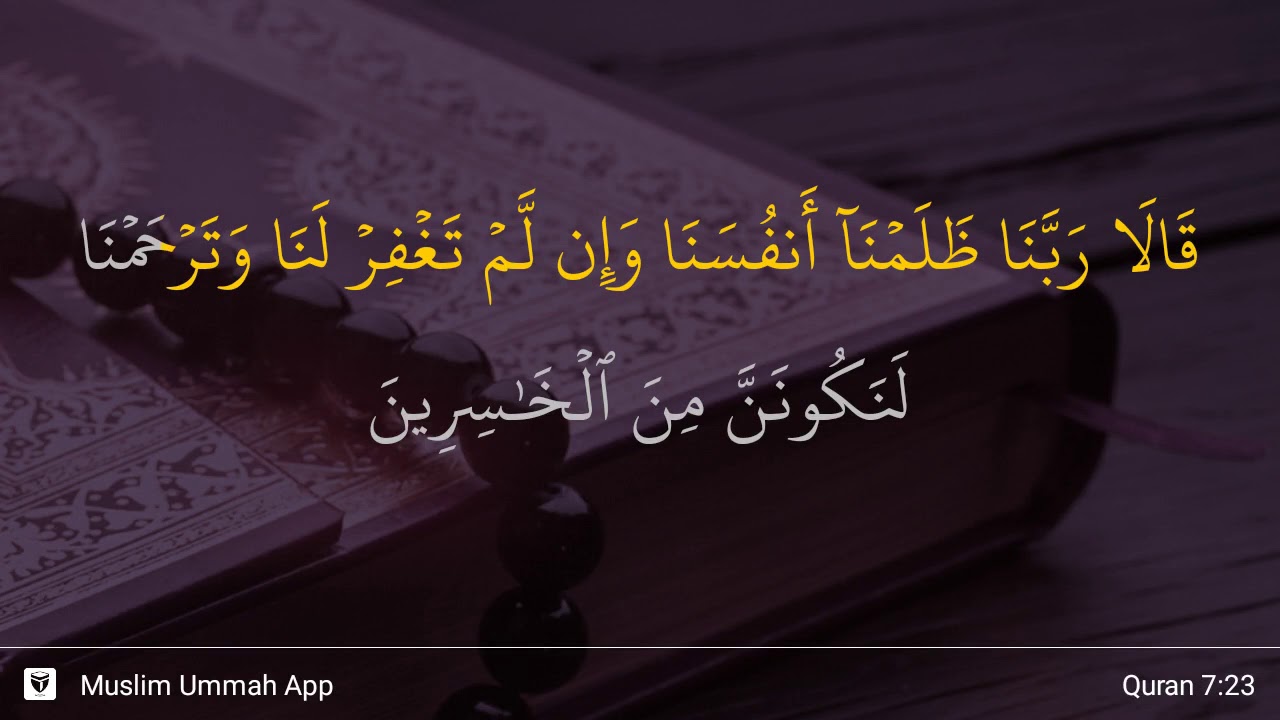 قَالَا رَبَّنَا ظَلَمۡنَآ أَنفُسَنَا وَإِن لَّمۡ تَغۡفِرۡ لَنَا وَتَرۡحَمۡنَا
لَنَكُونَنَّ مِنَ ٱلۡخَٰسِرِينَ
Muslim Ummah App
Quran 7:23